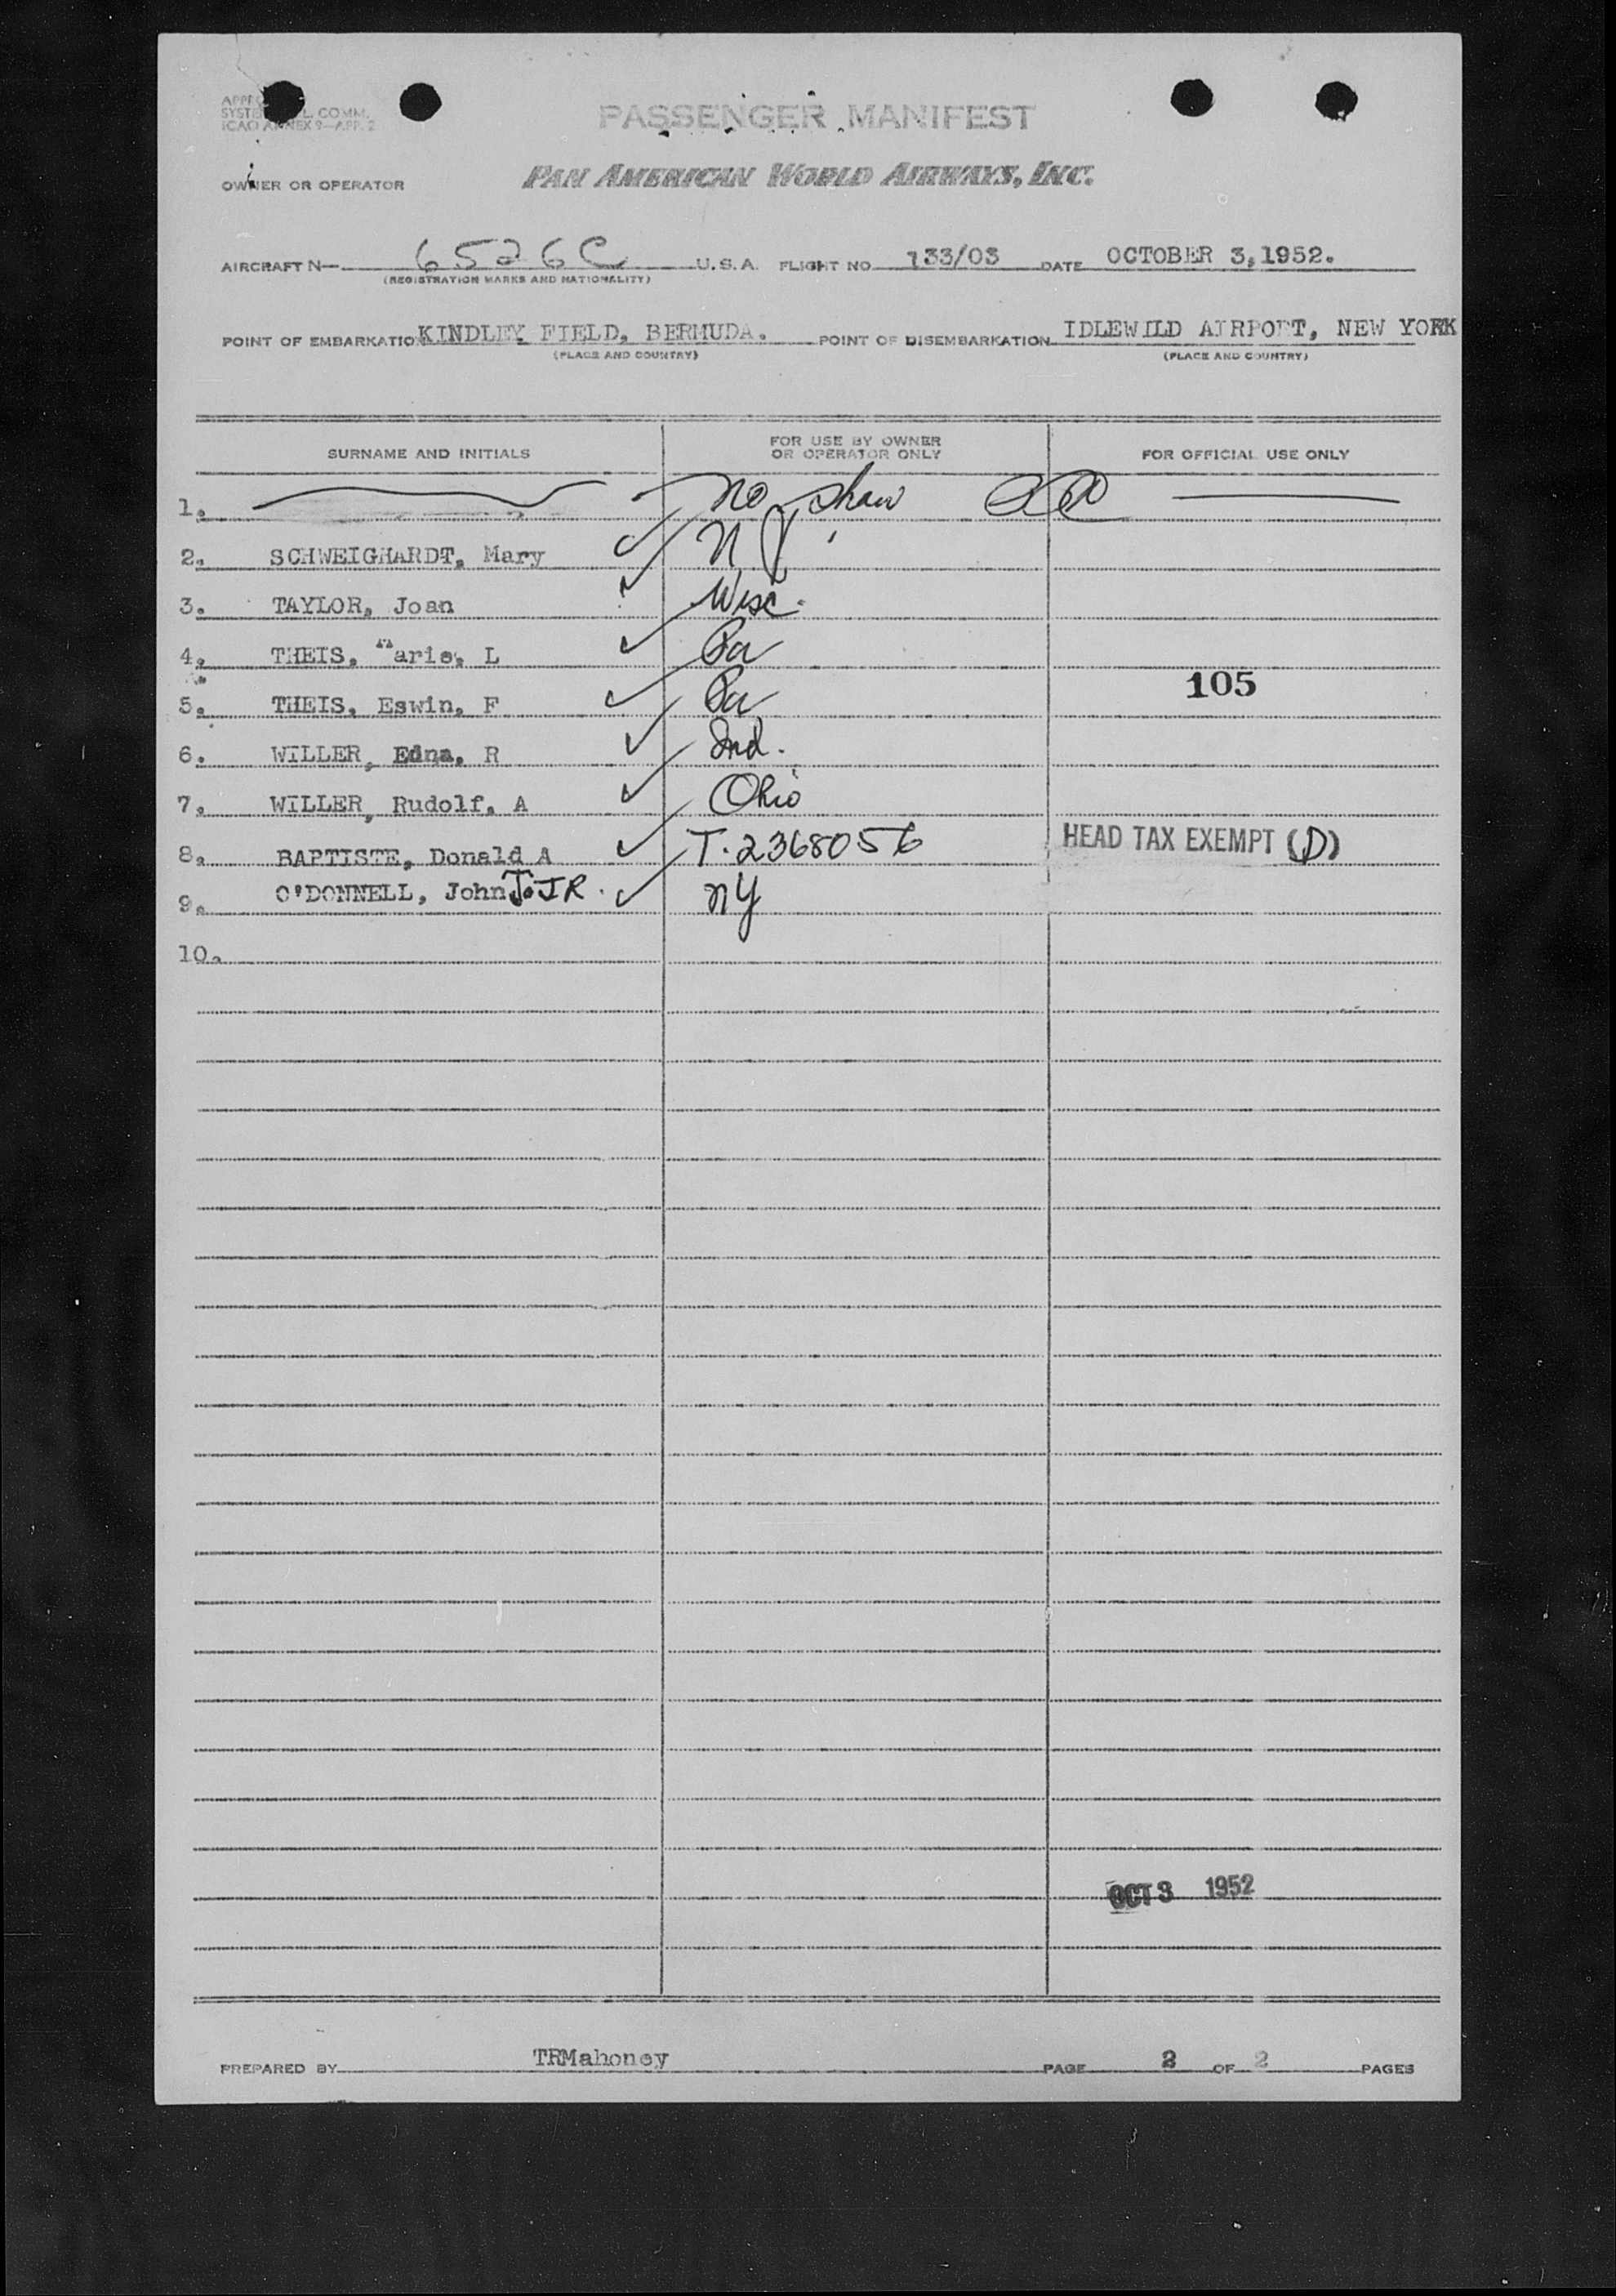 SYSTE L. COMM.
ICAO ANNEX 9—APP. 2
PASSENGER MANIFEST
OWNER OR OPERATOR PAN AMERICAN WORLD AIRWAYS, INC.
AIRCRAFT N— 6526C U.S.A. FLIGHT NO 133/03 DATE OCTOBER 3, 1952.
(REGISTRATION MARKS AND NATIONALITY)
POINT OF EMBARKATION KINDLEY FIELD, BERMUDA. POINT OF DISEMBARKATION IDLEWILD AIRPORT, NEW YORK
(PLACE AND COUNTRY) (PLACE AND COUNTRY)
SURNAME AND INITIALS FOR USE BY OWNER OR OPERATOR ONLY FOR OFFICIAL USE ONLY
1. no show
2. SCHWEIGHARDT, Mary
3. TAYLOR, Joan Wisc.
4. THEIS, Marie, L Pa
105
5. THEIS, Eswin, F Pa
6. WILLER, Edna, R Ind.
7. WILLER, Rudolf, A Ohio
8. BAPTISTE, Donald A T.2368056 HEAD TAX EXEMPT (D)
9. O'DONNELL, John J. JR. NY
10.
OCT 3 1952
PREPARED BY TRMahoney PAGE 2 OF 2 PAGES